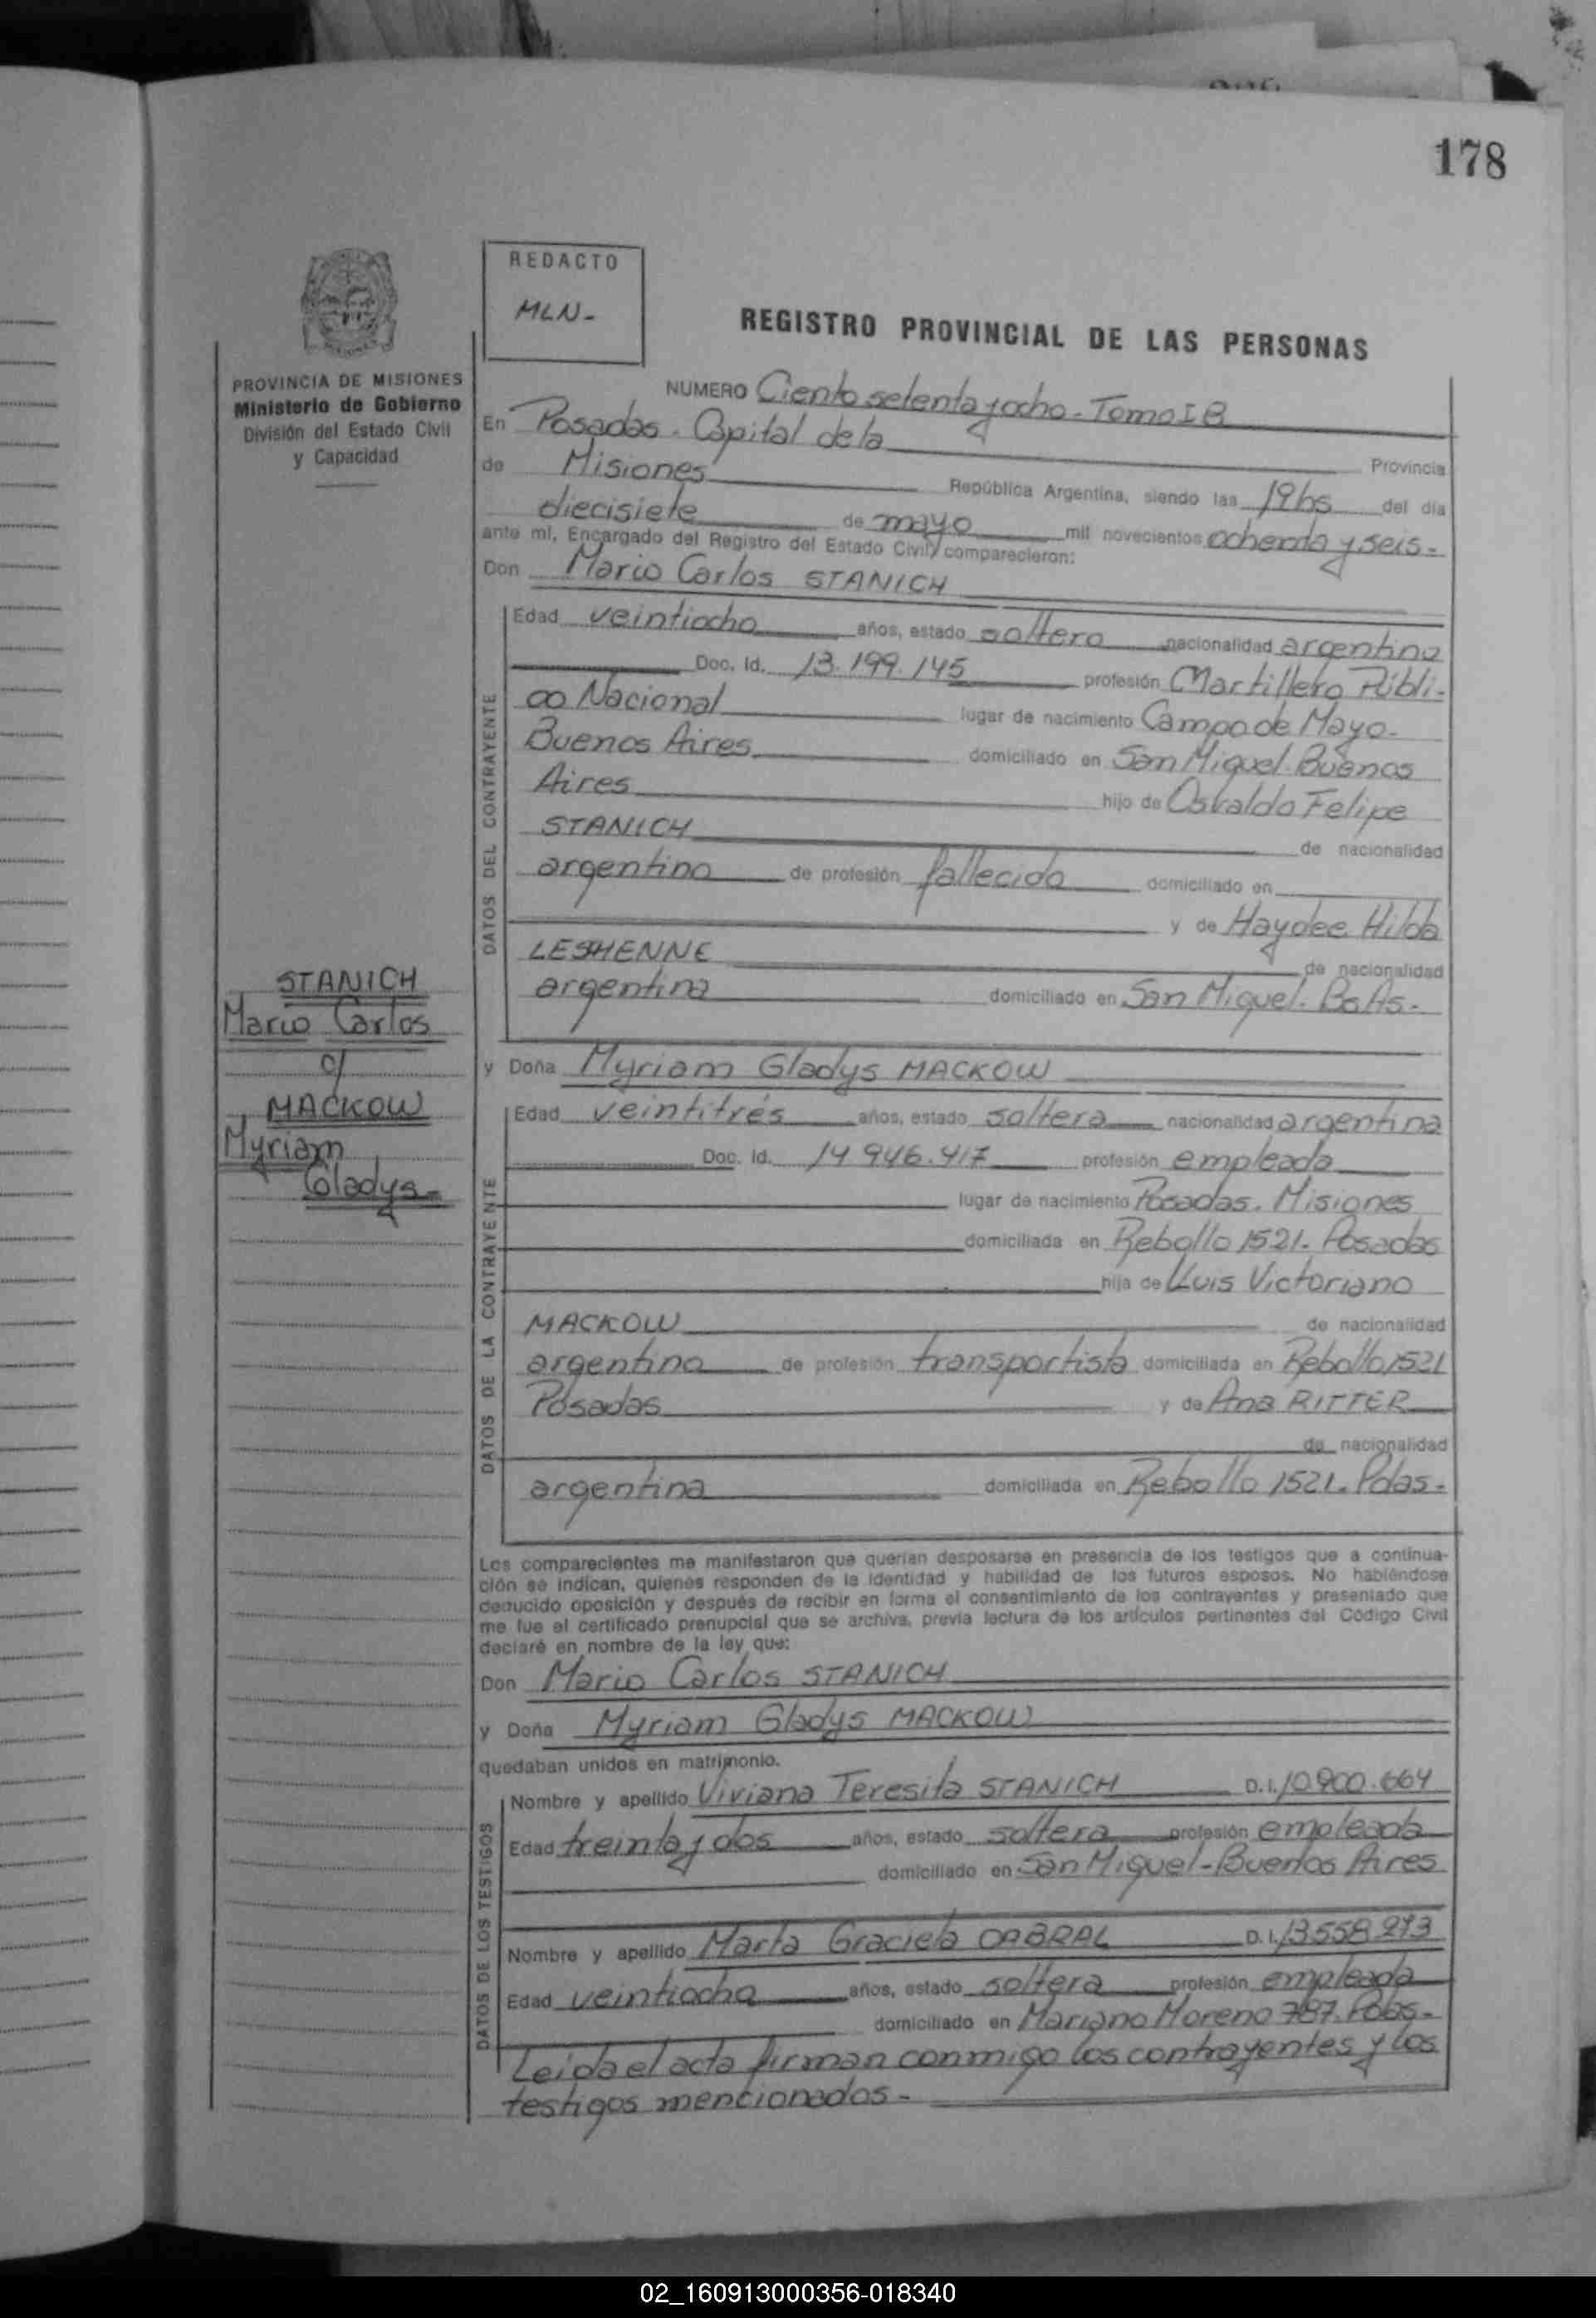 178
REDACTO
MLN-
REGISTRO PROVINCIAL DE LAS PERSONAS
PROVINCIA DE MISIONES
Ministerio de Gobierno
División del Estado Civil
y Capacidad
NUMERO Ciento setenta y ocho - Tomo I B
En Posadas - Capital de la Provincia
de Misiones República Argentina, siendo las 19 hs del día
diecisiete de mayo mil novecientos ochenta y seis -
ante mí, Encargado del Registro del Estado Civil, comparecieron:
Don Mario Carlos STANICH
DATOS DEL CONTRAYENTE
Edad veintiocho años, estado soltero nacionalidad argentina
Doc. Id. 13.199.145 profesión Martillero Públi-
co Nacional lugar de nacimiento Campo de Mayo -
Buenos Aires domiciliado en San Miguel. Buenos
Aires hijo de Osvaldo Felipe
STANICH de nacionalidad
argentina de profesión fallecido domiciliado en
y de Haydee Hilda
LESHENNE de nacionalidad
argentina domiciliado en San Miguel. Bs As -
STANICH
Mario Carlos
c/
MACKOW
Myriam
Gladys -
y Doña Myriam Gladys MACKOW
DATOS DE LA CONTRAYENTE
Edad veintitrés años, estado soltera nacionalidad argentina
Doc. Id. 14 946.417 profesión empleada
lugar de nacimiento Posadas. Misiones
domiciliada en Rebollo 1521. Posadas
hija de Luis Victoriano
MACKOW de nacionalidad
argentina de profesión transportista domiciliada en Rebollo 1521
Posadas y de Ana RITTER
de nacionalidad
argentina domiciliada en Rebollo 1521. Pdas -
Los comparecientes me manifestaron que querían desposarse en presencia de los testigos que a continua-
ción se indican, quienes responden de la identidad y habilidad de los futuros esposos. No habiéndose
deducido oposición y después de recibir en forma el consentimiento de los contrayentes y presentado que
me fue el certificado prenupcial que se archiva, previa lectura de los artículos pertinentes del Código Civil
declaré en nombre de la ley que:
Don Mario Carlos STANICH
y Doña Myriam Gladys MACKOW
quedaban unidos en matrimonio.
DATOS DE LOS TESTIGOS
Nombre y apellido Viviana Teresita STANICH D.I. 10.900.664
Edad treinta y dos años, estado soltera profesión empleada
domiciliado en San Miguel - Buenos Aires
Nombre y apellido Marta Graciela CABRAL D.I. 13558
Edad veintiocho años, estado soltera profesión empleada
domiciliado en Mariano Moreno 787. Pdas -
Leida el acta firman conmigo los contrayentes y los
testigos mencionados -
02_160913000356-018340